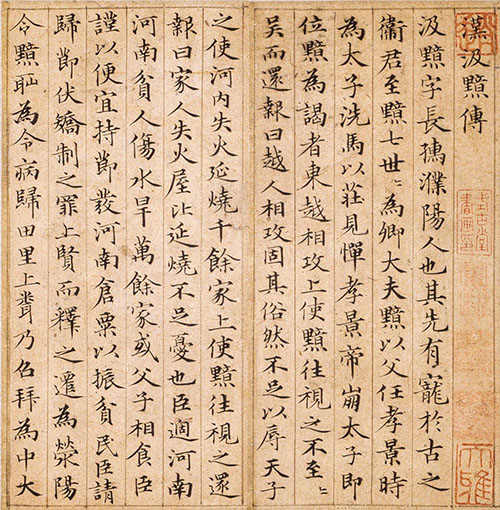 漢汲黯傳
汲黯字長孺濮陽人也其先有寵於古之
衞君至黯七世〻為卿大夫黯以父任孝景時
為太子洗馬以莊見憚孝景帝崩太子即
位黯為謁者東越相攻上使黯往視之不至〻
吴而還報曰越人相攻固其俗然不足以辱天子
之使河内失火延燒千餘家上使黯往視之還
報曰家人失火屋比延燒不足憂也臣適河南
河南貧人傷水旱萬餘家或父子相食臣
謹以便宜持節發河南倉粟以振貧民臣請
歸節伏矯制之罪上賢而釋之遷為滎陽
令黯恥為令病歸田里上聞乃召拜為中大
大雅